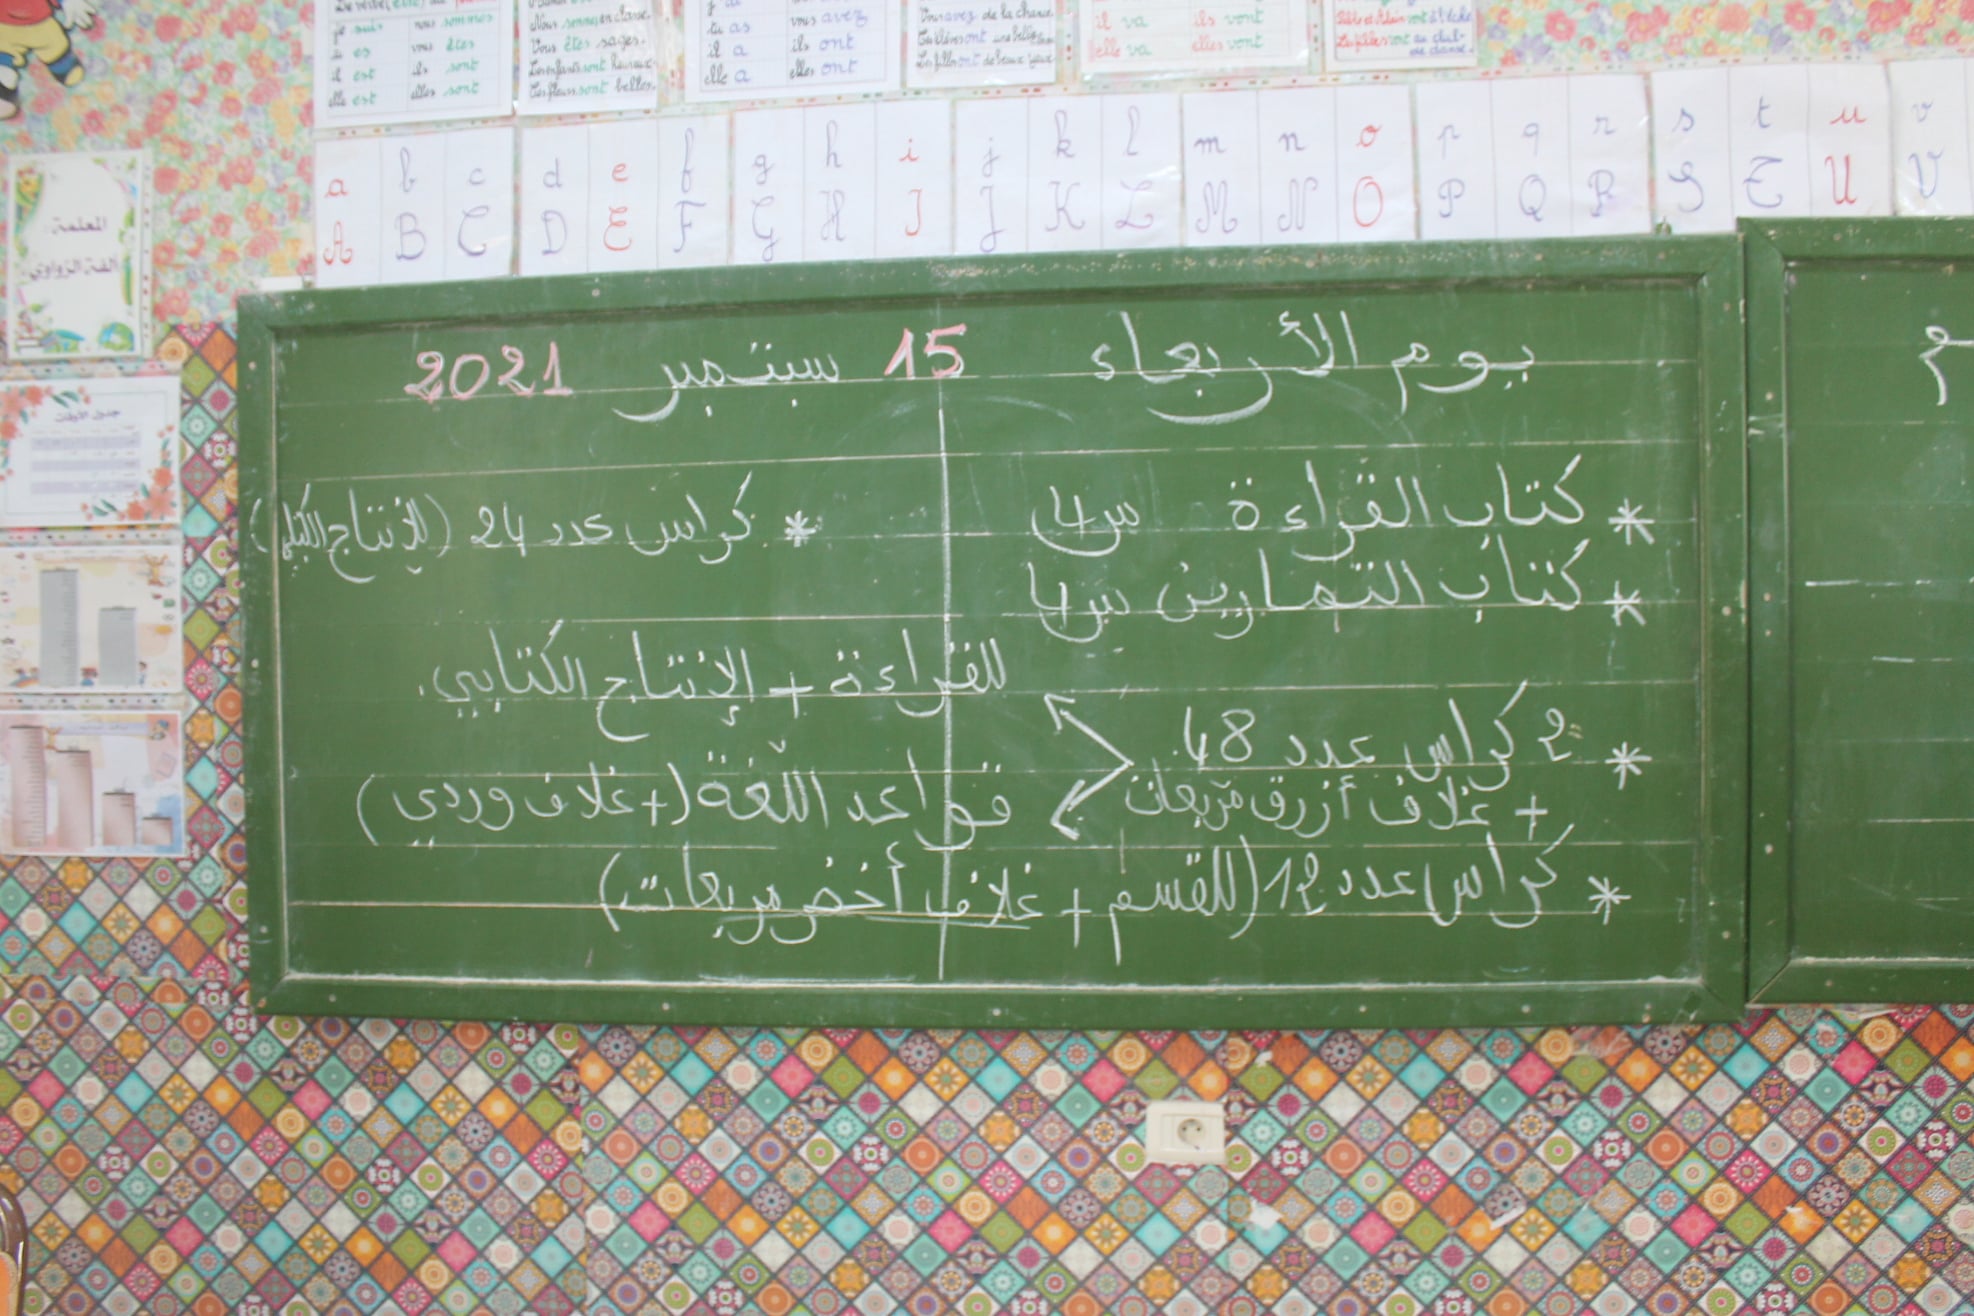 Le verbe (être) au
je suis nous sommes
tu es vous êtes
il est ils sont
elle est elles sont
Nous sommes en classe.
Vous êtes sages.
Les enfants sont heureux.
Les fleurs sont belles.
j' ai vous avez
tu as
il a ils ont
elle a elles ont
Vous avez de la chance.
Les élèves ont une belle
Les filles ont de beaux yeux.
il va ils vont
elle va elles vont
vont à l'école
Les filles vont au club
de danse.
a b c d e f g h i j k l m n o p q r s t u v
A B C D E F G H I J K L M N O P Q R S T U V
المعلمة:
ألفة الزواوي
جدول الأوقات
يوم الأربعاء 15 سبتمبر 2021
* كتاب القراءة س4
* كتاب التمارين س4
* 2 كراس عدد 48
+ غلاف أزرق مربعات
للقراءة + الإنتاج الكتابي.
قواعد اللّغة (+ غلاف وردي)
* كراس عدد 12 (للقسم + غلاف أخضر مربعات)
* كراس عدد 24 (للإنتاج الكتابي)
م